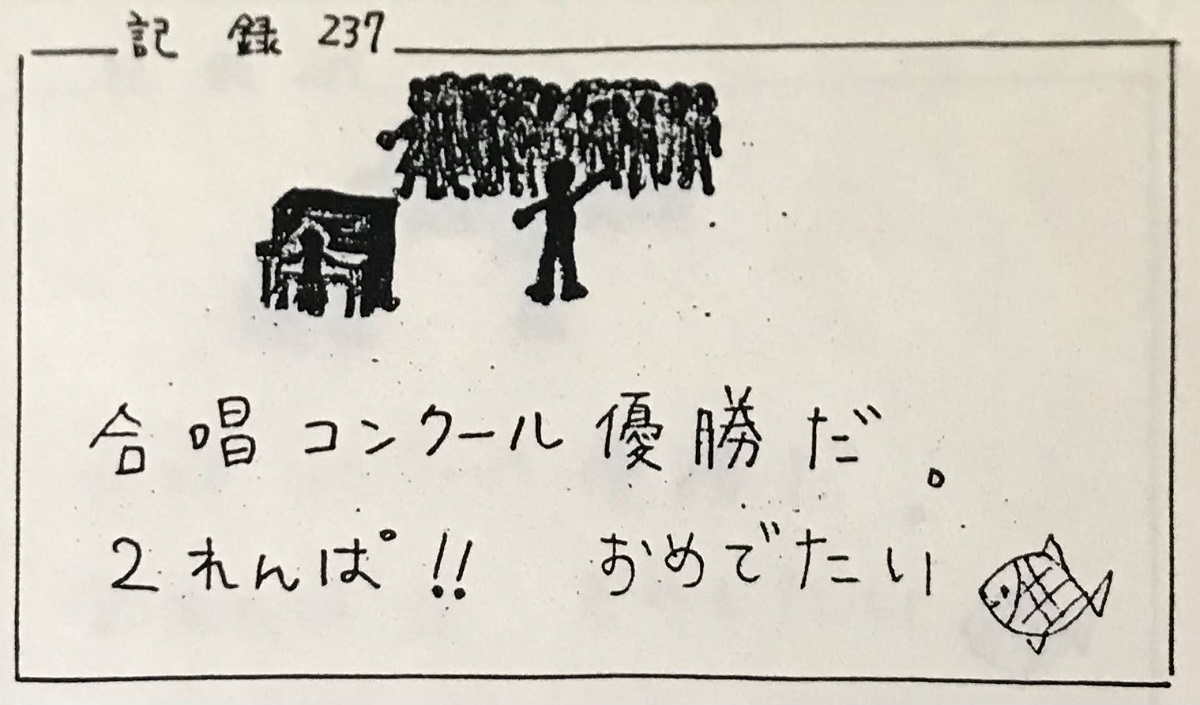 記録 237
合唱コンクール優勝だ。
2れんぱ!! おめでたい